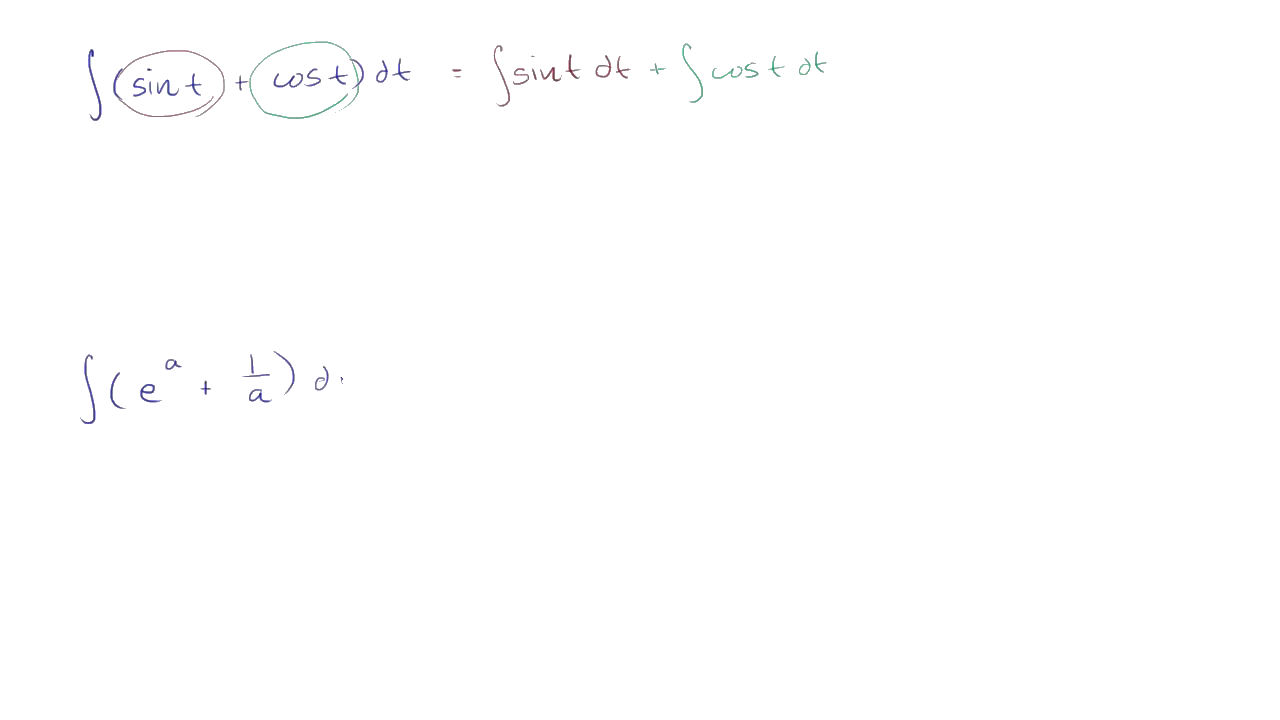 ∫(sin t + cos t) dt = ∫sin t dt + ∫cos t dt
∫(e^a + 1/a) d